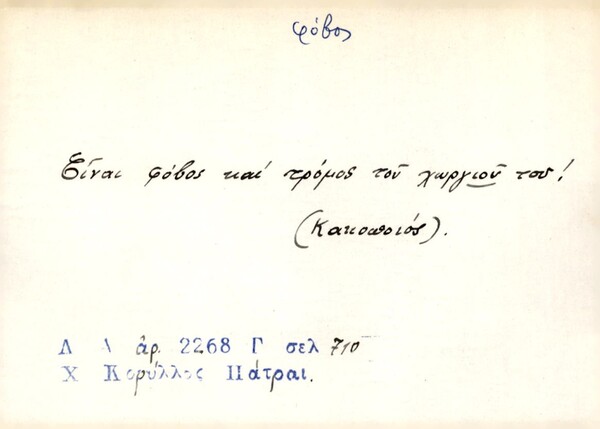 φόβος
Εἶναι φόβος καί τρόμος τοῦ χωργιοῦ του!
(Κακοποιός).
Λ Α ἀρ. 2268 Γ σελ 710
Χ Κορύλλος Πάτραι.